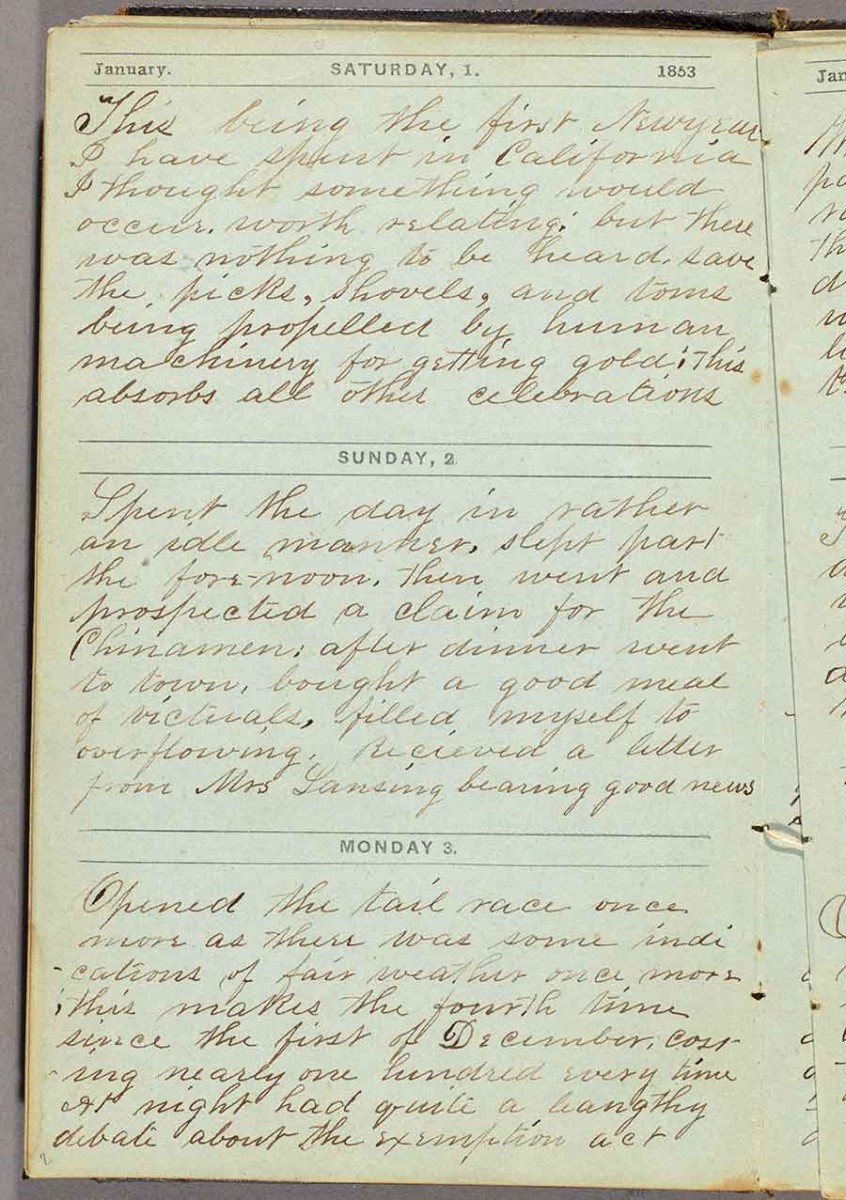 January. SATURDAY, 1. 1853
This being the first Newyear
I have spent in California
I thought something would
occur. worth relating; but there
was nothing to be heard. save
the picks, shovels, and toms
being propelled by human
machinery for getting gold; this
absorbs all other celebrations
SUNDAY, 2
Spent the day in rather
an idle manner. slept part
the fore-noon. then went and
prospected a claim for the
Chinamen; after dinner went
to town, bought a good meal
of victuals, filled myself to
overflowing. Recieved a letter
from Mrs Lansing bearing good news
MONDAY 3.
Opened the tail race once
more as there was some indi
-cations of fair weather once more
; this makes the fourth time
since the first of December. cost
-ing nearly one hundred every time
At night had quite a leangthy
debate about the exemption act
Jan